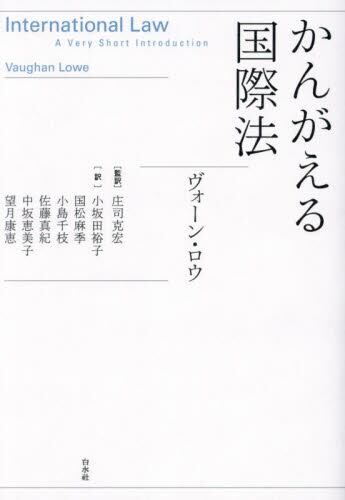 International Law
A Very Short Introduction
Vaughan Lowe
かんがえる
国際法
ヴォーン・ロウ
［監訳］庄司克宏
［訳］小坂田裕子
国松麻季
小島千枝
佐藤真紀
中坂恵美子
望月康恵
白水社